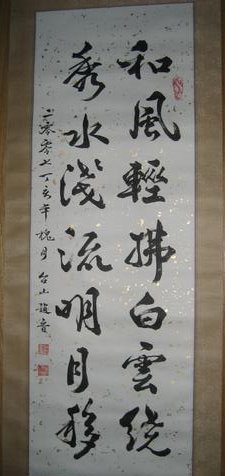 和風輕拂白雲绕
秀水淺流明月移
二零零七丁亥年槐月台山